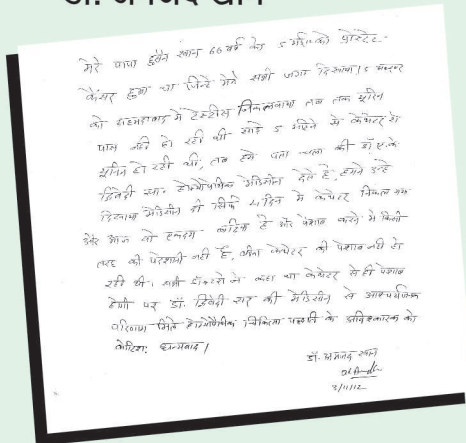 डॉ. अमजद खान
मेरे पापा हुसैन खान 66 वर्ष का 5 महिने को प्रोस्टेट
कैंसर हुआ था जिन्हें मैंने सभी जगा दिखाया। 5 अक्टूबर
को अहमदाबाद में टेस्टीस निकलवाया तब तक यूरिन
पास नहीं हो रही थी साढ़े 5 महिने से केथेटर से
यूरिन हो रही थी, तब हमे पता चला की डॉ. ए.के.
द्विवेदी सर होम्योपैथिक मेडिसीन देते है, हमने उन्हें
दिखाया मेडिसीन ली सिर्फ 4 दिन में केथेटर निकल गया
और आज वो एकदम है और पेशाब करने में किसी
तरह की परेशानी नहीं है, बीना केथेटर की पेशाब नहीं हो
रही थी। सभी डॉक्टरों ने कहा था केथेटर से ही पेशाब
होगी पर डॉ. द्विवेदी सर की मेडिसीन से आश्चर्यजनक
परिणाम मिले होम्योपैथीक चिकित्सा पद्धति के अविष्कारक को
कोटिश: धन्यवाद।
डॉ. अमजद खान
3/11/12